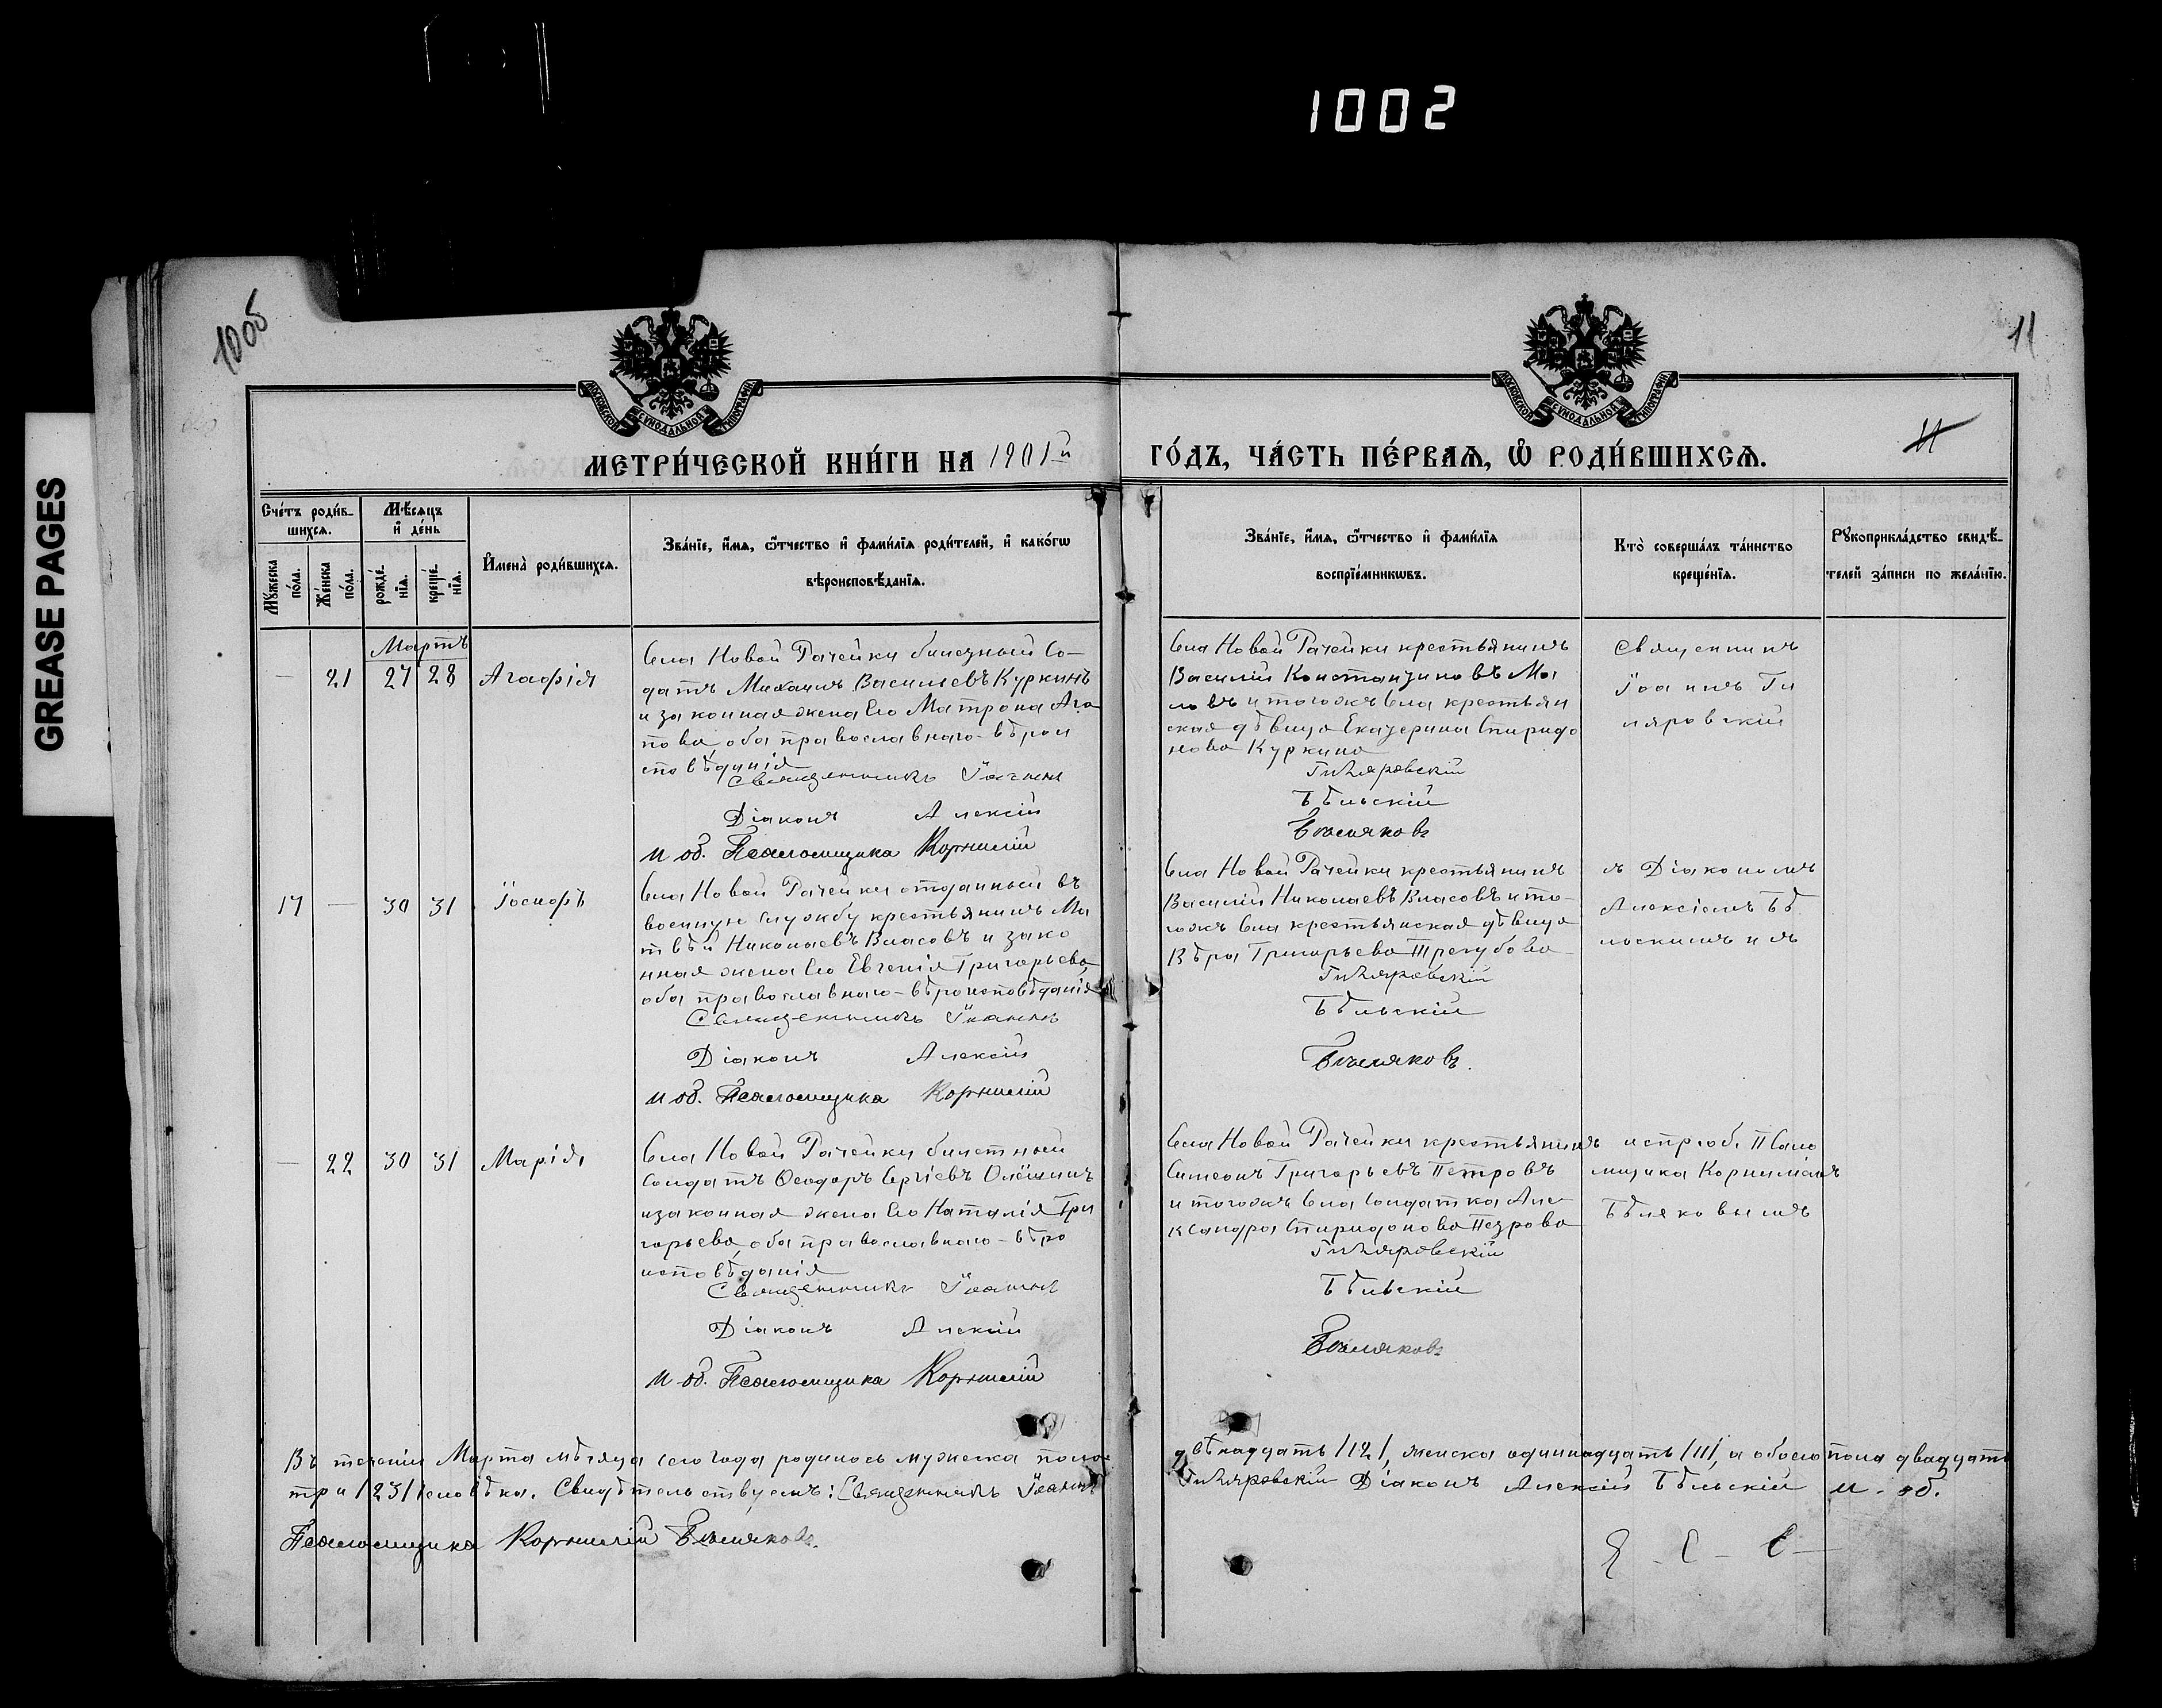 1002
GREASE PAGES
10об
11
МОСКОВСКОЙ СѴНОДАЛЬНОЙ ТИПОГРАФІИ
МОСКОВСКОЙ СѴНОДАЛЬНОЙ ТИПОГРАФІИ
МЕТРИ́ЧЕСКОЙ КНИ́ГИ НА 1901й
ГО́ДЪ, ЧА́СТЬ ПЕ́РВАѦ, Ѡ҆ РОДИ́ВШИХСѦ.
11
Сче́тъ роди́в-
шихсѧ.
Мꙋ́жеска
по́ла.
Же́нска
по́ла.
Мѣ́сѧцъ
и҆ де́нь
рожде́-
нїѧ.
креще́-
нїѧ.
И҆мена̀ роди́вшихсѧ.
Зва́нїе, и҆́мѧ, ѻ҆́тчество и҆ фами́лїѧ роди́телей, и҆ како́гѡ
вѣроисповѣ́данїѧ.
Зва́нїе, и҆́мѧ, ѻ҆́тчество и҆ фами́лїѧ
воспрїе́мникѡвъ.
Кто̀ соверша́лъ та́инство
креще́нїѧ.
Рꙋкоприкла́дство свидѣ́-
телей за́писи по жела́нїю.
Мартъ
— 21 27 28 Агафія
Села Новой Рачейки билетный Со-
датъ Михаилъ Васильевъ Куркинъ
и законная жена его Матрона Ага
пова, оба православнаго вѣрои
сповѣданія
Священникъ Іоаннъ
Діаконъ Алексій
И об. Псаломщика Корнилій
Села Новой Рачейки крестьянинъ
Василій Константиновъ Ма
ловъ и тогожъ села крестьян
ская дѣвица Екатерина Спиридо
нова Куркина
Гиляровскій
Бѣльскій
Бѣляковъ
Священникъ
Іоаннъ Ги
ляровскій
17 — 30 31 Іосифъ
Села Новой Рачейки отданный въ
военную службу крестьянинъ Ма
твѣй Николаевъ Власовъ и зако
нная жена его Евгенія Григорьева,
оба православнаго вѣроисповѣданія
Священникъ Іоаннъ
Діаконъ Алексій
И об. Псаломщика Корнилій
Села Новой Рачейки крестьянинъ
Василій Николаевъ Власовъ и то-
гожъ села крестьянская дѣвица
Вѣра Григорьева Трегубова
Гиляровскій
Бѣльскій
Бѣляковъ.
съ Діакономъ
Алексіемъ Бѣ
льскимъ и съ
— 22 30 31 Марія
Села Новой Рачейки билетный
солдатъ Ѳеодоръ Сергіевъ Олёшинъ
и законная жена его Наталія Гри
горьева, оба православнаго вѣро
исповѣданія
Священникъ Іоаннъ
Діаконъ Алексій
И об. Псаломщика Корнилій
Села Новой Рачейки крестьянинъ
Симеонъ Григорьевъ Петровъ
и тогожъ села солдатка Але-
ксандра Спиридонова Петрова
Гиляровскій
Бѣльскій
Бѣляковъ
испр. об. Псало
мщика Корниліемъ
Бѣляковымъ
Въ теченіи Марта мѣсяца сего года родилось мужеска пола двѣнадцать /12/, женска одиннадцать /11/, а обоего пола двадцать
три /23/ человѣка. Свидѣтельствуемъ: Священникъ Іоаннъ Гиляровскій Діаконъ Алексій Бѣльскій И. об.
Псаломщика Корнилій Бѣляковъ.